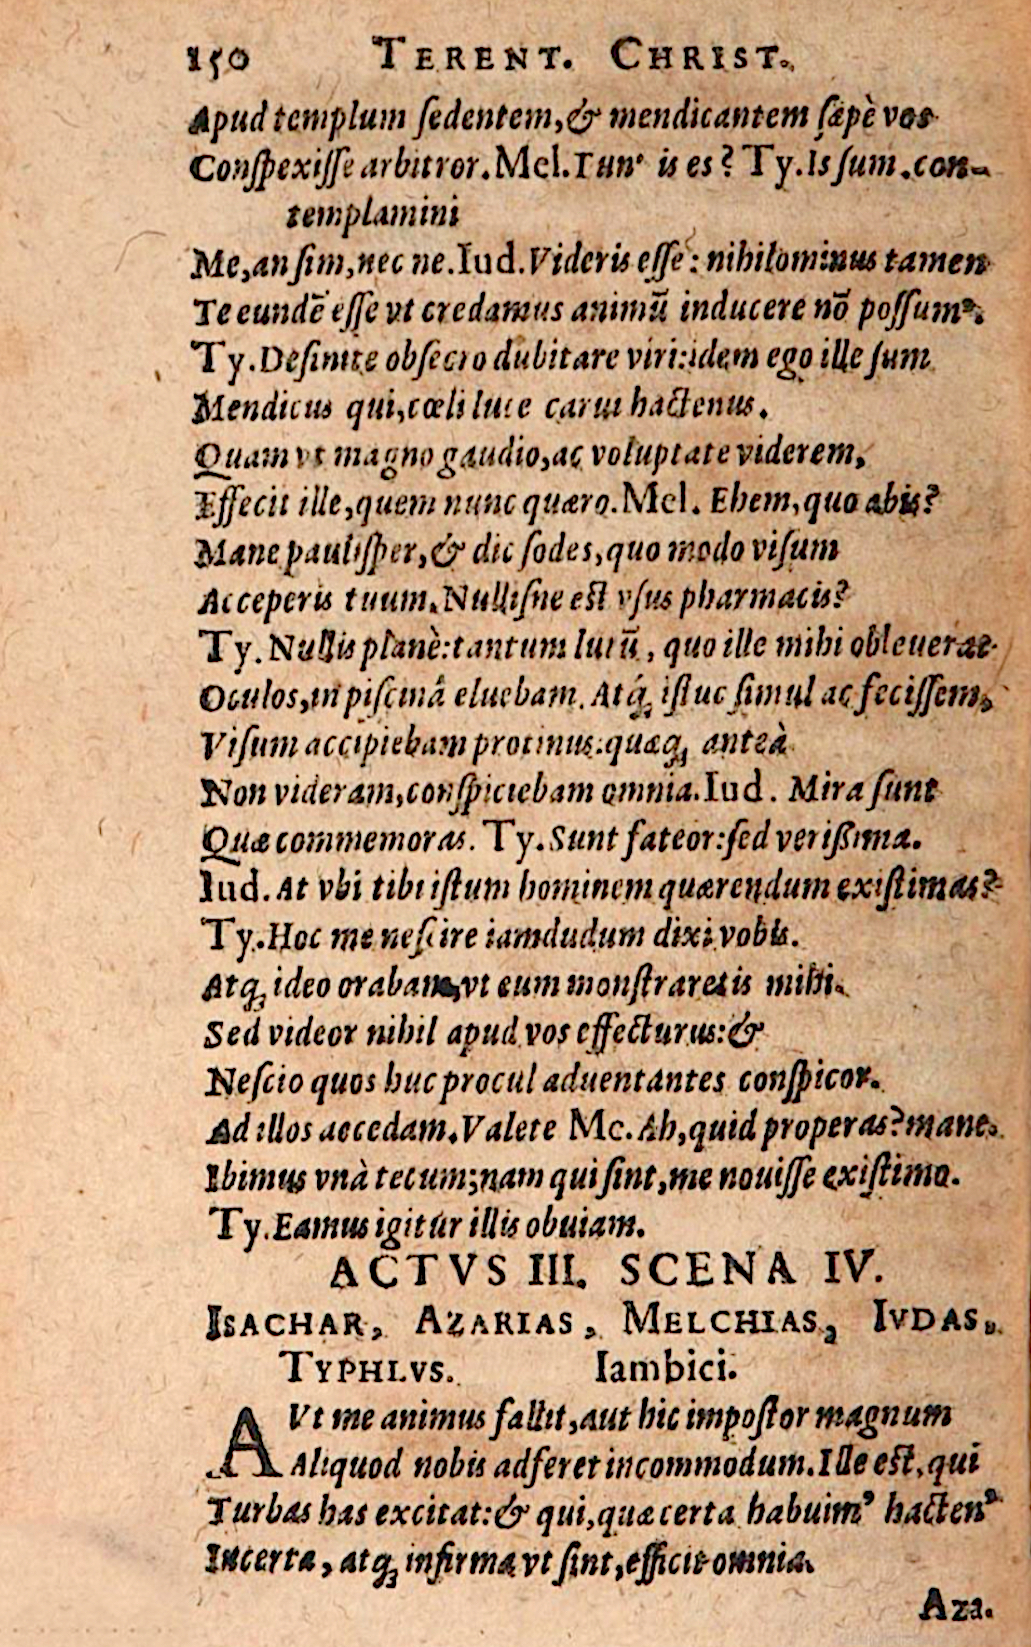 150 TERENT. CHRIST.
Apud templum ſedentem, & mendicantem ſæpè vos
Conſpexiſſe arbitror. Mel. Tun' is es? Ty. Is ſum. con-
templamini
Me, an ſim, nec ne. Iud. Videris eſſe: nihilominus tamen
Te eundē eſſe vt credamus animū inducere nō poſſumꝰ.
Ty. Deſinite obſecro dubitare viri: idem ego ille ſum
Mendicus qui, cœli luce carui hactenus.
Quam vt magno gaudio, ac voluptate viderem,
Effecit ille, quem nunc quæro. Mel. Ehem, quo abis?
Mane pauliſper, & dic ſodes, quo modo viſum
Acceperis tuum. Nulliſne est vſus pharmacis?
Ty. Nullis planè: tantum lutū, quo ille mihi obleuerat
Oculos, in piſcinâ eluebam. Atq́ꝫ iſtuc ſimul ac feciſſem,
Viſum accipiebam protinus: quæqꝫ anteà
Non videram, conſpiciebam omnia. Iud. Mira ſunt
Quæ commemoras. Ty. Sunt fateor: ſed verißima.
Iud. At vbi tibi iſtum hominem quærendum exiſtimas?
Ty. Hoc me neſcire iamdudum dixi vobis.
Atqꝫ ideo orabam, vt eum monſtraretis mihi.
Sed videor nihil apud vos effecturus: &
Neſcio quos huc procul aduentantes conſpicor.
Ad illos accedam. Valete Me. Ah, quid properas? mane.
Ibimus vnà tecum; nam qui ſint, me nouiſſe exiſtimo.
Ty. Eamus igitur illis obuiam.
ACTVS III. SCENA IV.
ISACHAR, AZARIAS, MELCHIAS, IVDAS,
TYPHLVS. Iambici.
AVt me animus fallit, aut hic impoſtor magnum
Aliquod nobis adferet incommodum. Ille est, qui
Turbas has excitat: & qui, quæ certa habuimꝰ hactenꝰ
Incerta, atqꝫ infirma vt ſint, efficit omnia.
Aza.